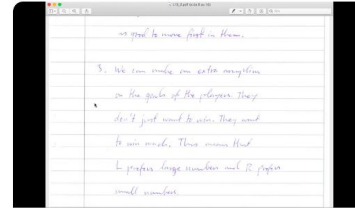 as good to move first in them.
3. We can make an extra assumption
on the goals of the players. They
don't just want to win. They want
to win much. This means that
L prefers large numbers and R prefers
small numbers.